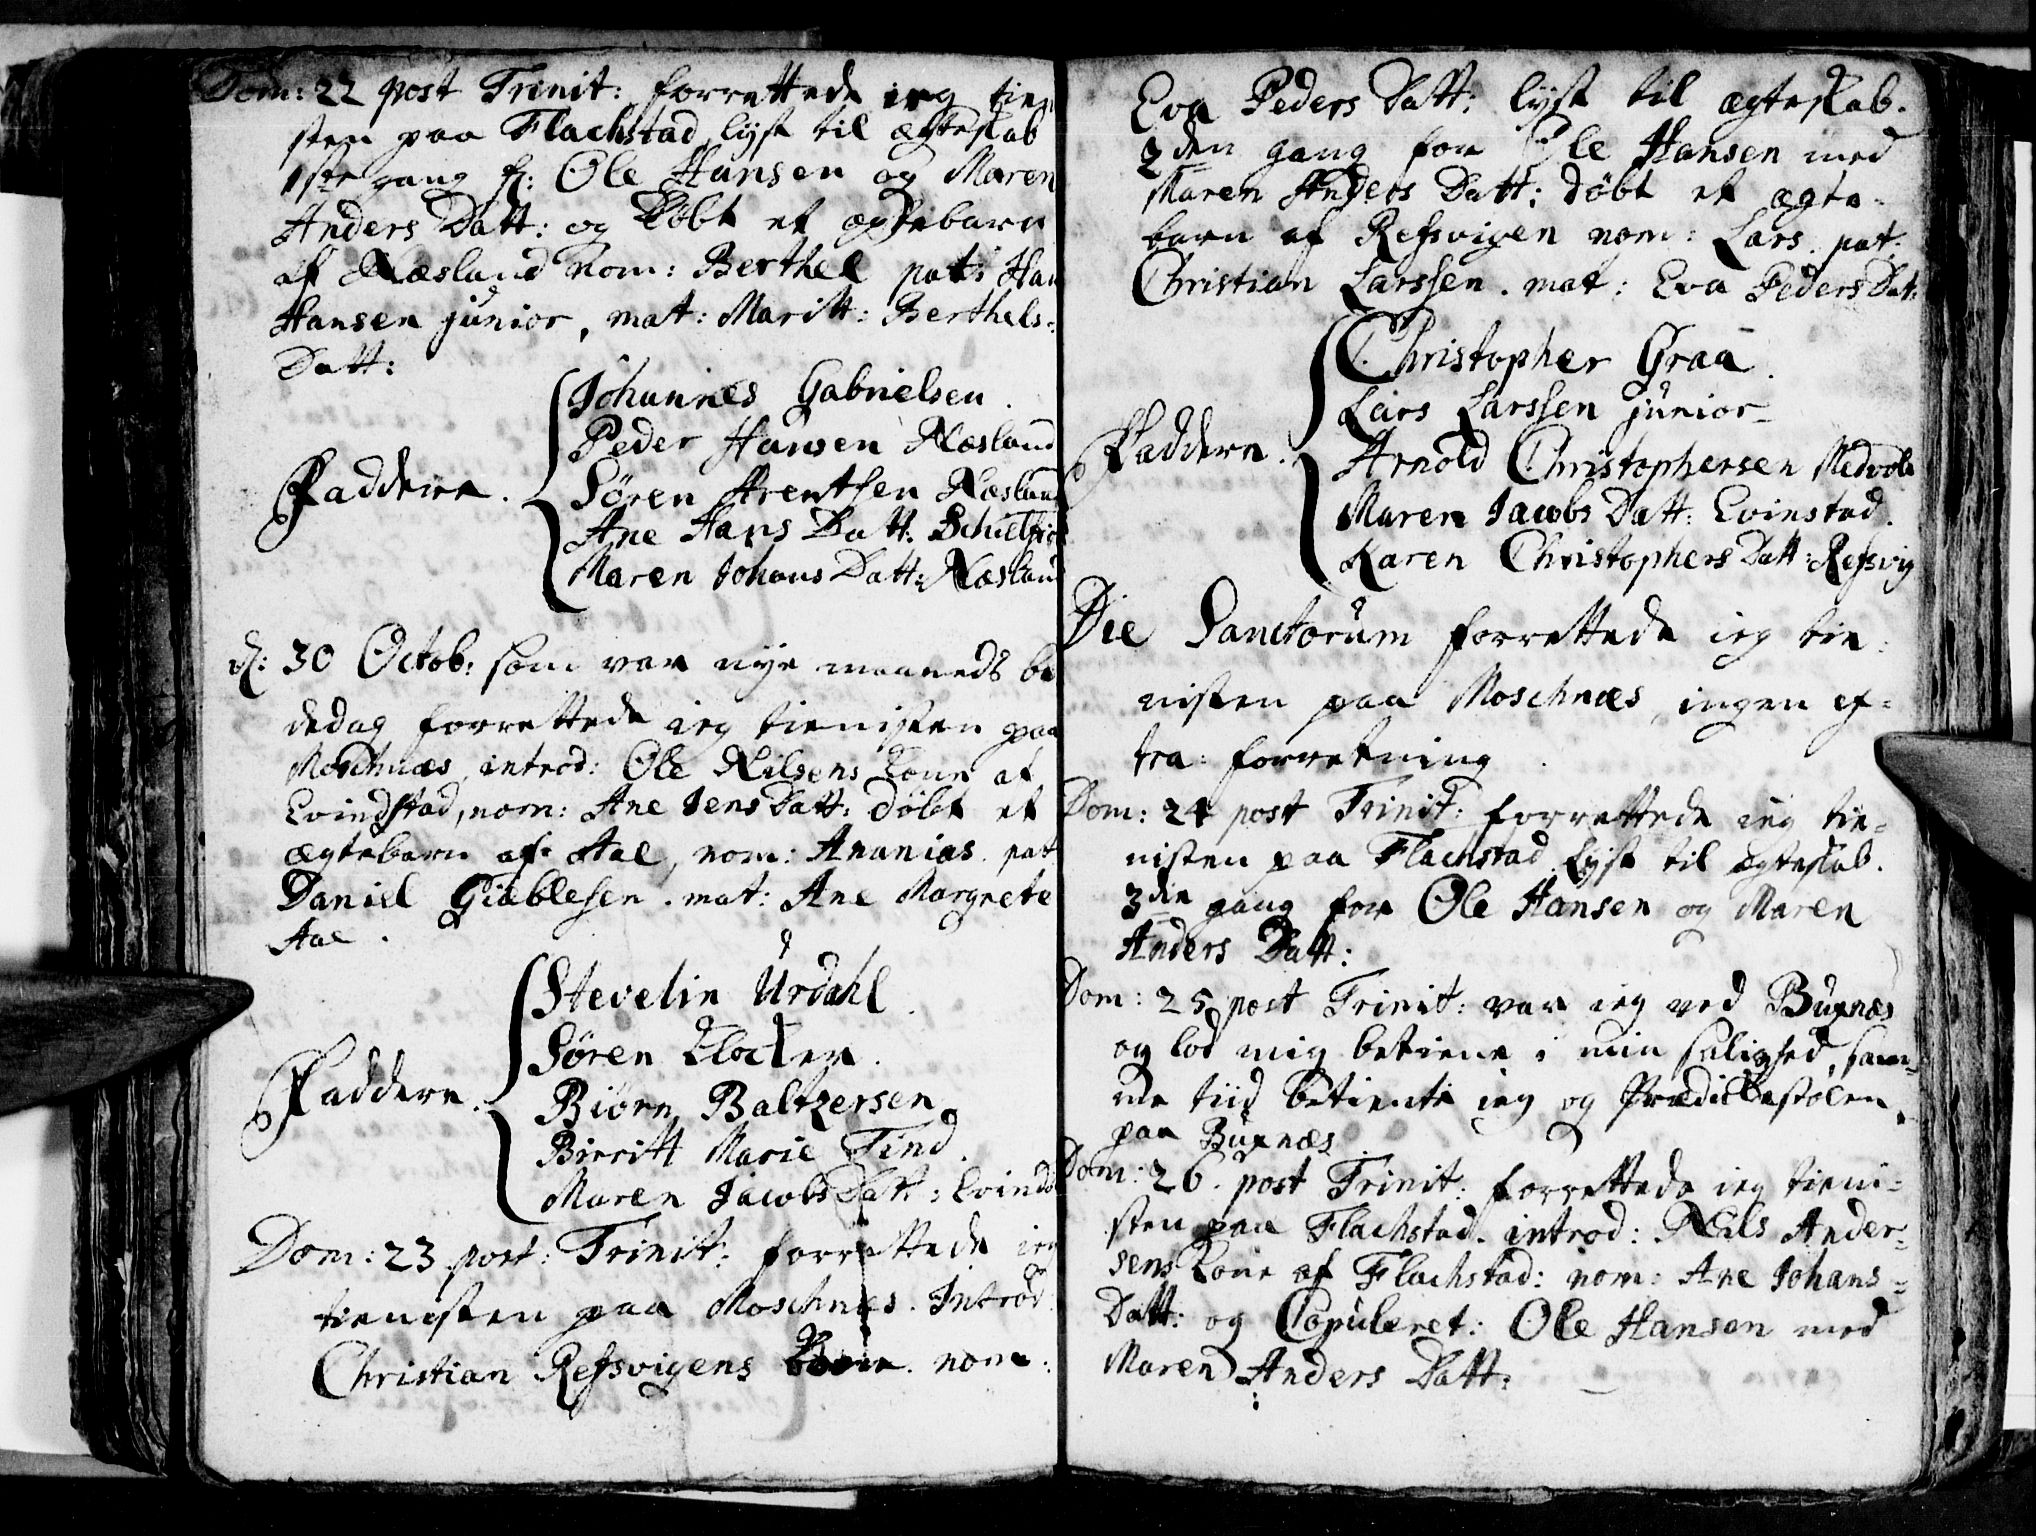 Dom: 22 post Trinit: forrettede ieg tien
sten paa Flachstad, lyst til ægteskab
1ste gang f: Ole Hansen og Maren
Anders Datt: og Døbt et ægtebarn
af Næsland nom: Berthel pat: Han
Hansen junior, mat: Maritt: Berthels-
Datt:
Johannes Gabrielsen.
Peder Hansen Næsland
Faddere. Søren Arentsen Næsland
Ane Hans Datt: Schielfio
Maren Johans Datt: Næsland
d: 30 Octob: som var nye maaneds be
dedag forrettede ieg tienisten paa
Moschnæs, introd: Ole Nilsens Kone af
Evindstad, nom: Ane Jens Datt: døbt et
ægtebarn af Aae, nom: Ananias. pat
Daniel Giæblesen. mat: Ane Margrete
Aae.
Stevelin Urdahl.
Søren Klocker.
Faddere. Biørn Baltzersen
Birritt Marie Find.
Maren Jacobs Datt: Evinds
Dom: 23 post: Trinit: forrettede ieg
tienesten paa Moschnæs. Introd:
Christian Refsvigens Kone. nom:
Eva Peders Datt: lyst til ægteskab.
2den gang for Ole Hansen med
Maren Anders Datt: døbt et ægte-
barn af Refsvigen nom: Lars. pat:
Christian Larssen. mat: Eva Peders Dat:
Christopher Graa.
Lars Larssen junior
Faddere. Arnold Christophersen Medvold
Maren Jacobs Datt: Evinstad.
Karen Christophers Datt: Refsvig
Die Sanctorum forrettede ieg tie-
nisten paa Moschnæs, ingen ex-
tra: forretning.
Dom: 24 post Trinit: forrettede ieg tie-
nisten paa Flachstad, lyst til ægteskab.
3die gang for Ole Hansen og Maren
Anders Datt:
Dom: 25 post Trinit: var ieg ved Buxnæs
og lod mig betiene i min salighed, sam-
me tiid betiente ieg og Prædickestolen
paa Buxnæs
Dom: 26. post Trinit: forrettede ieg tieni-
sten paa Flachstad. introd: Nils Ander-
sens Kone af Flachstad: nom: Ane Johans-
Datt: og Copuleret: Ole Hansen med
Maren Anders Datt: